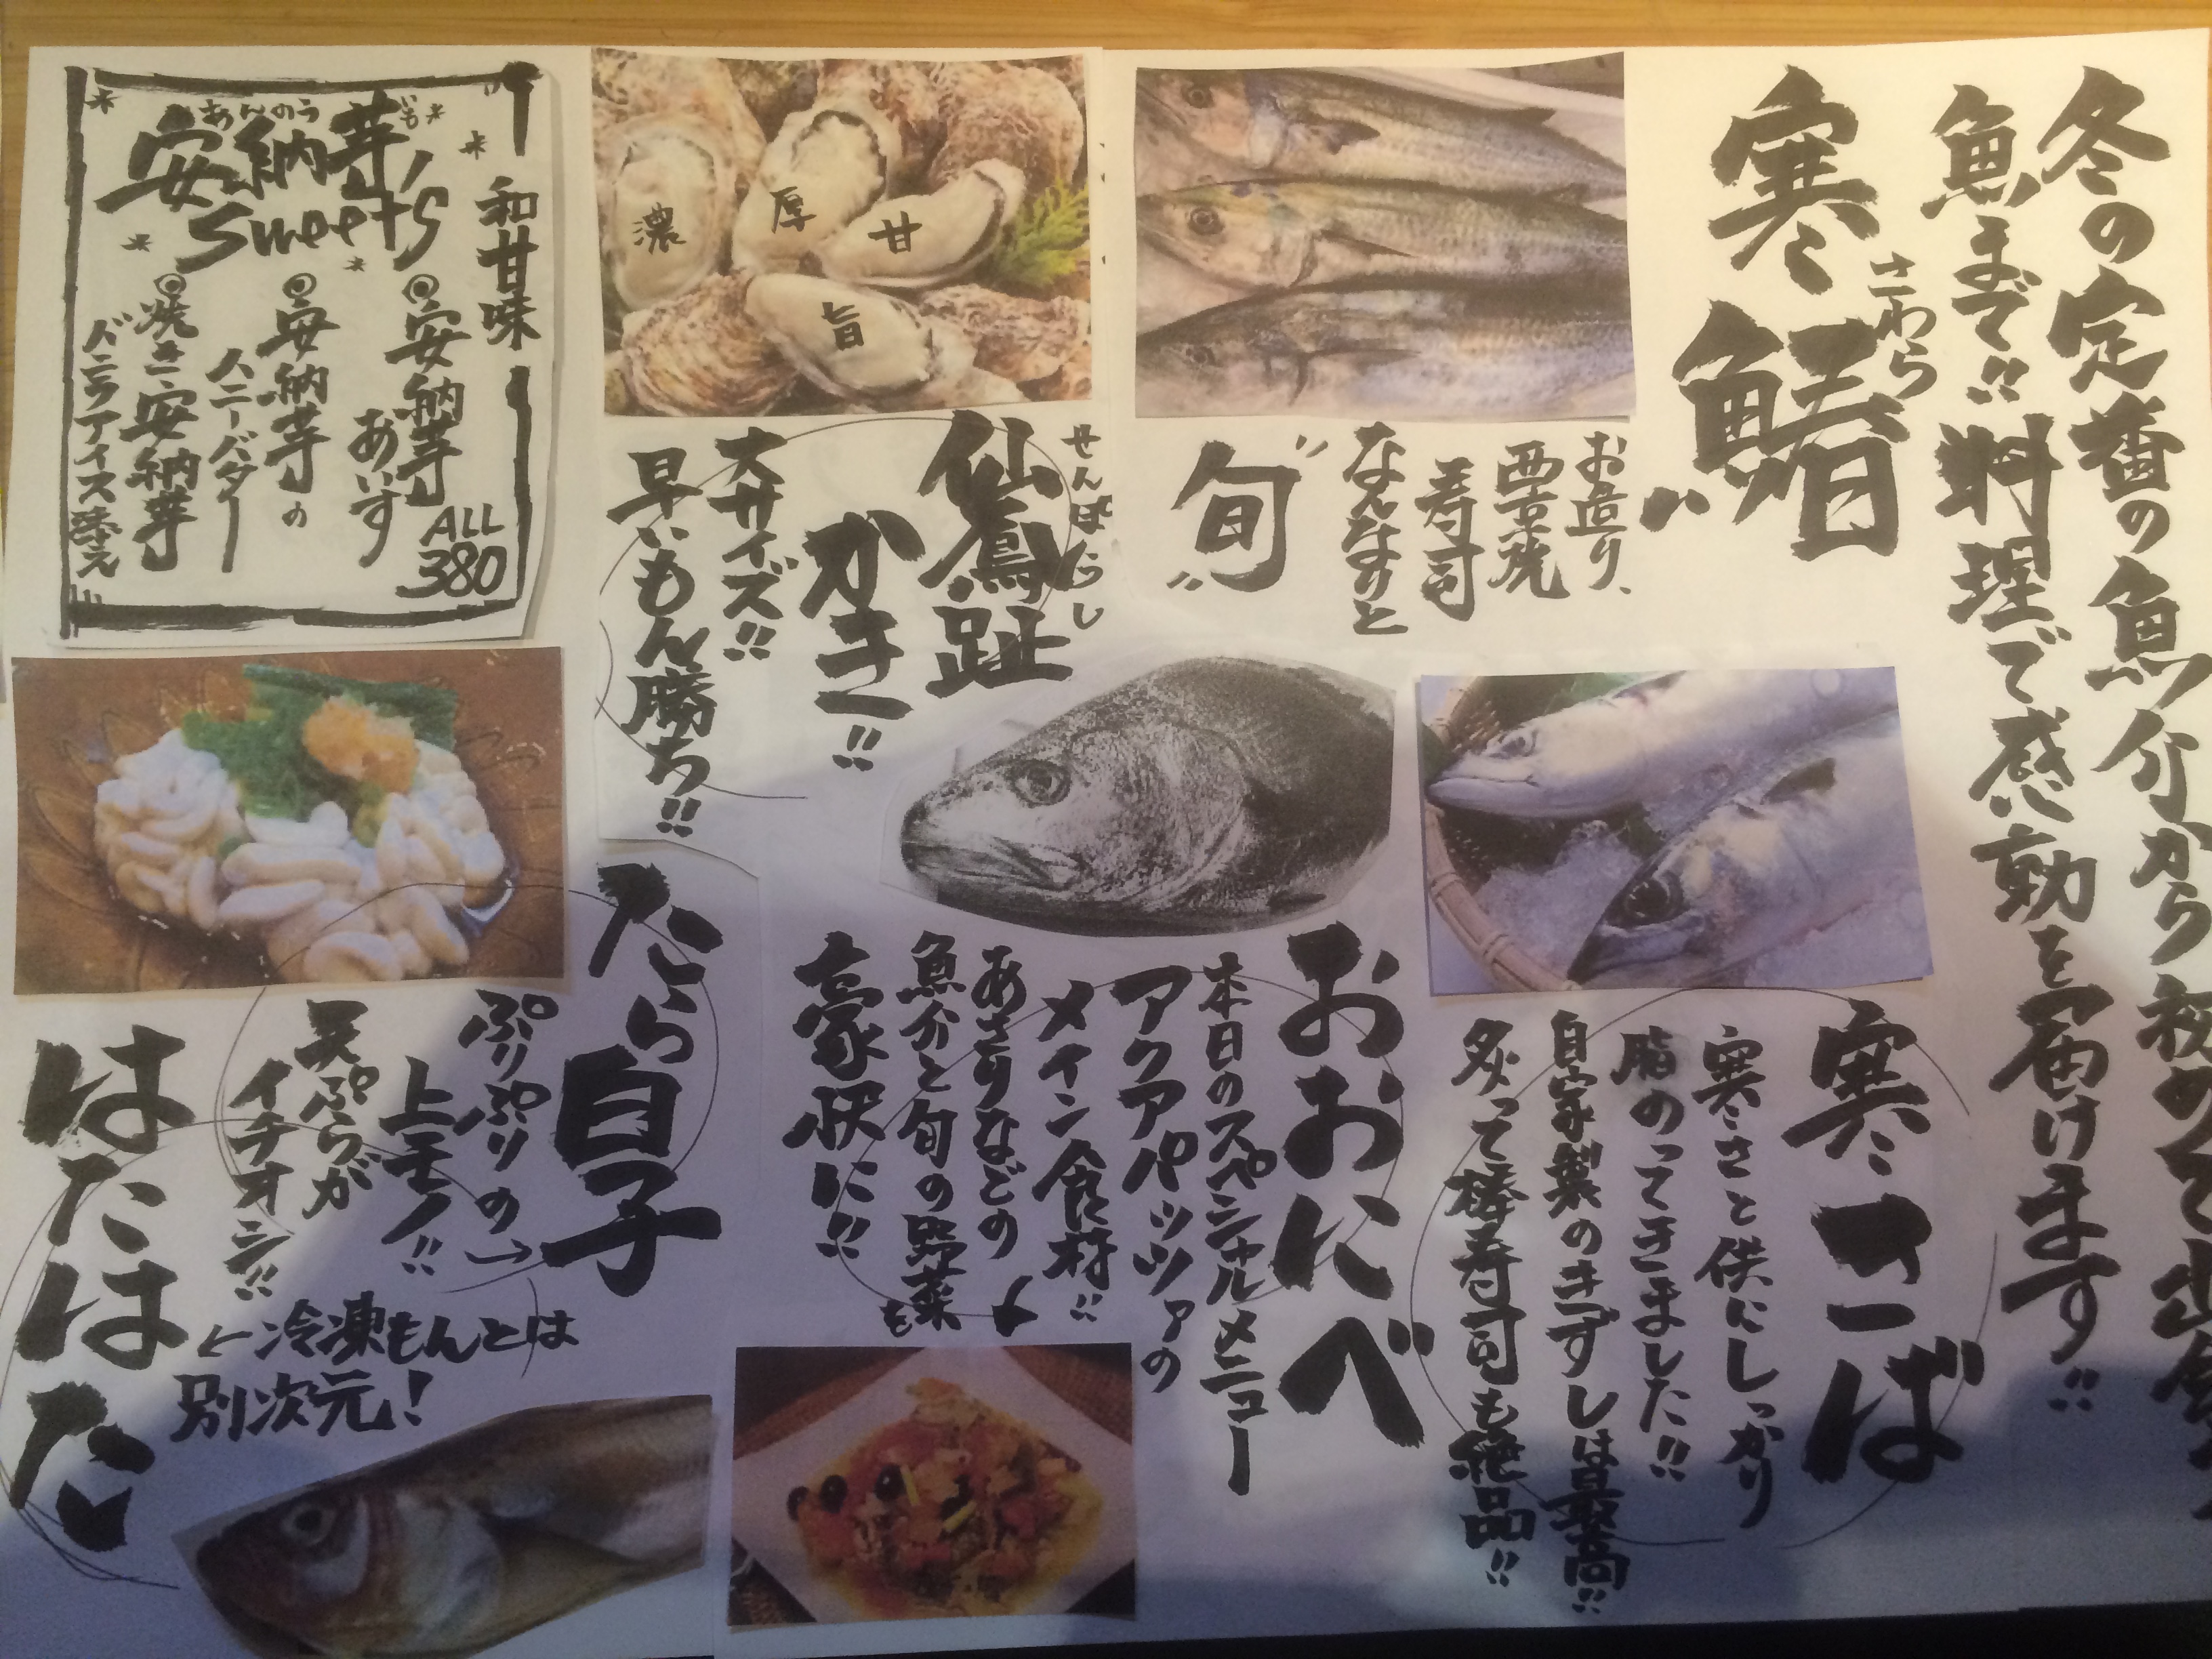 冬の定番の魚介から初めて出会う
魚まで!!料理で感動を届けます!!
寒鰆
さわら
お造り、
西京焼
寿司
なんなりと
"旬"
寒さば
寒さと供にしっかり
脂のってきました!!
自家製のきずしは最高!!
炙って棒寿司も絶品!!
おおにべ
本日のスペシャルメニュー
アクアパッツァの
メイン食材!!
あさりなどの
魚介と旬の野菜も
豪快に!!
濃
厚
甘
旨
せんぽうし
仙鳳趾
かきー!!
大サイズ!!
早いもん勝ち!!
たら白子
ぷりぷりの→
上モノ!!
天ぷらが
イチオシ!!
はたはた
←冷凍もんとは
別次元!
"和甘味"
あんのういも
安納芋's
Sweet's
◎安納芋
あいす
◎安納芋の
ハニーバター
◎焼き安納芋
バニラアイス添え
ALL
380